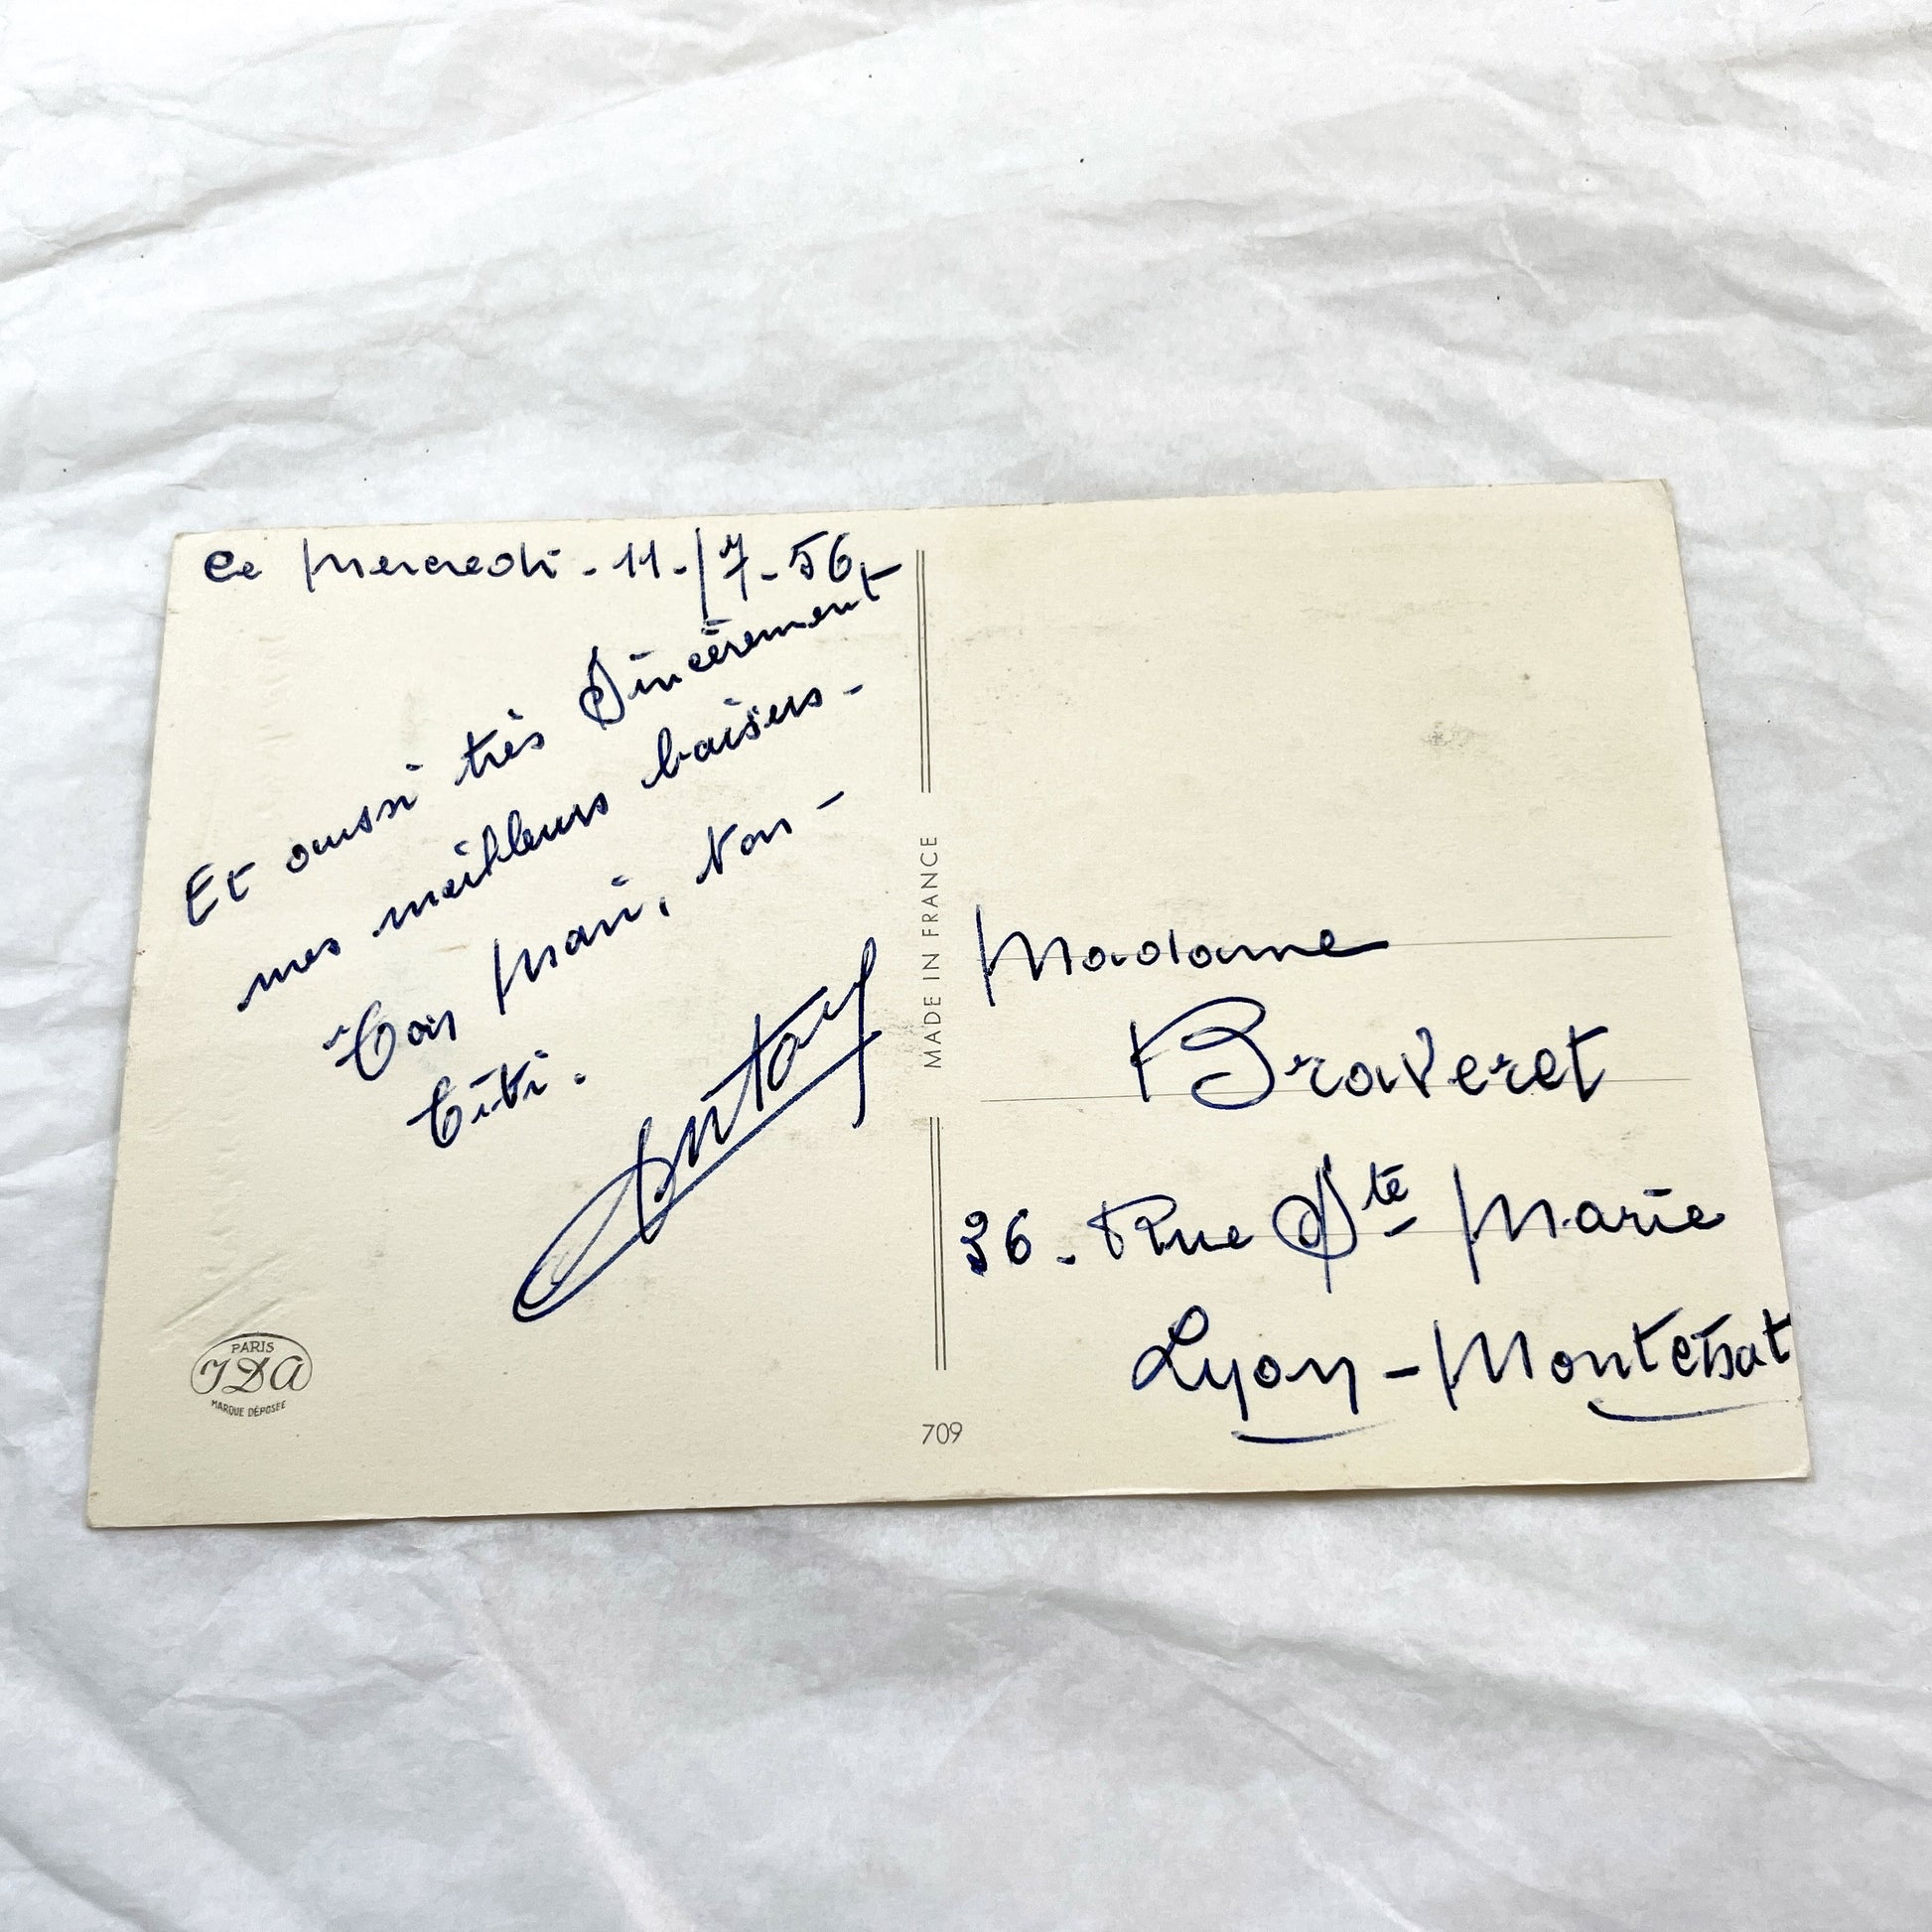 Ce Mercredi - 11 - / 7 - 56
Et aussi très Sincèrement
mes meilleurs baisers -
Ton Mari, ton -
titi.
MADE IN FRANCE
Madame
Braveret
36 - Rue Ste Marie
Lyon - Montchat
PARIS
IDA
MARQUE DÉPOSÉE
709